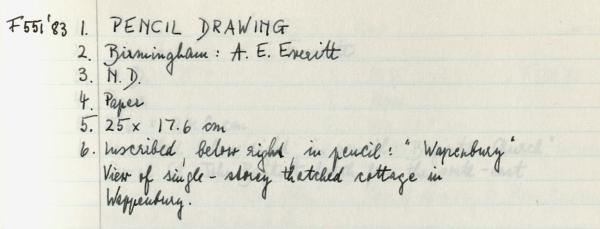 F551'83 1. PENCIL DRAWING
2. Birmingham: A. E. Everitt
3. N.D.
4. Paper
5. 25 x 17.6 cm
6. Inscribed, below right, in pencil: "Wapenbury"
View of single-storey thatched cottage in
Wappenbury.